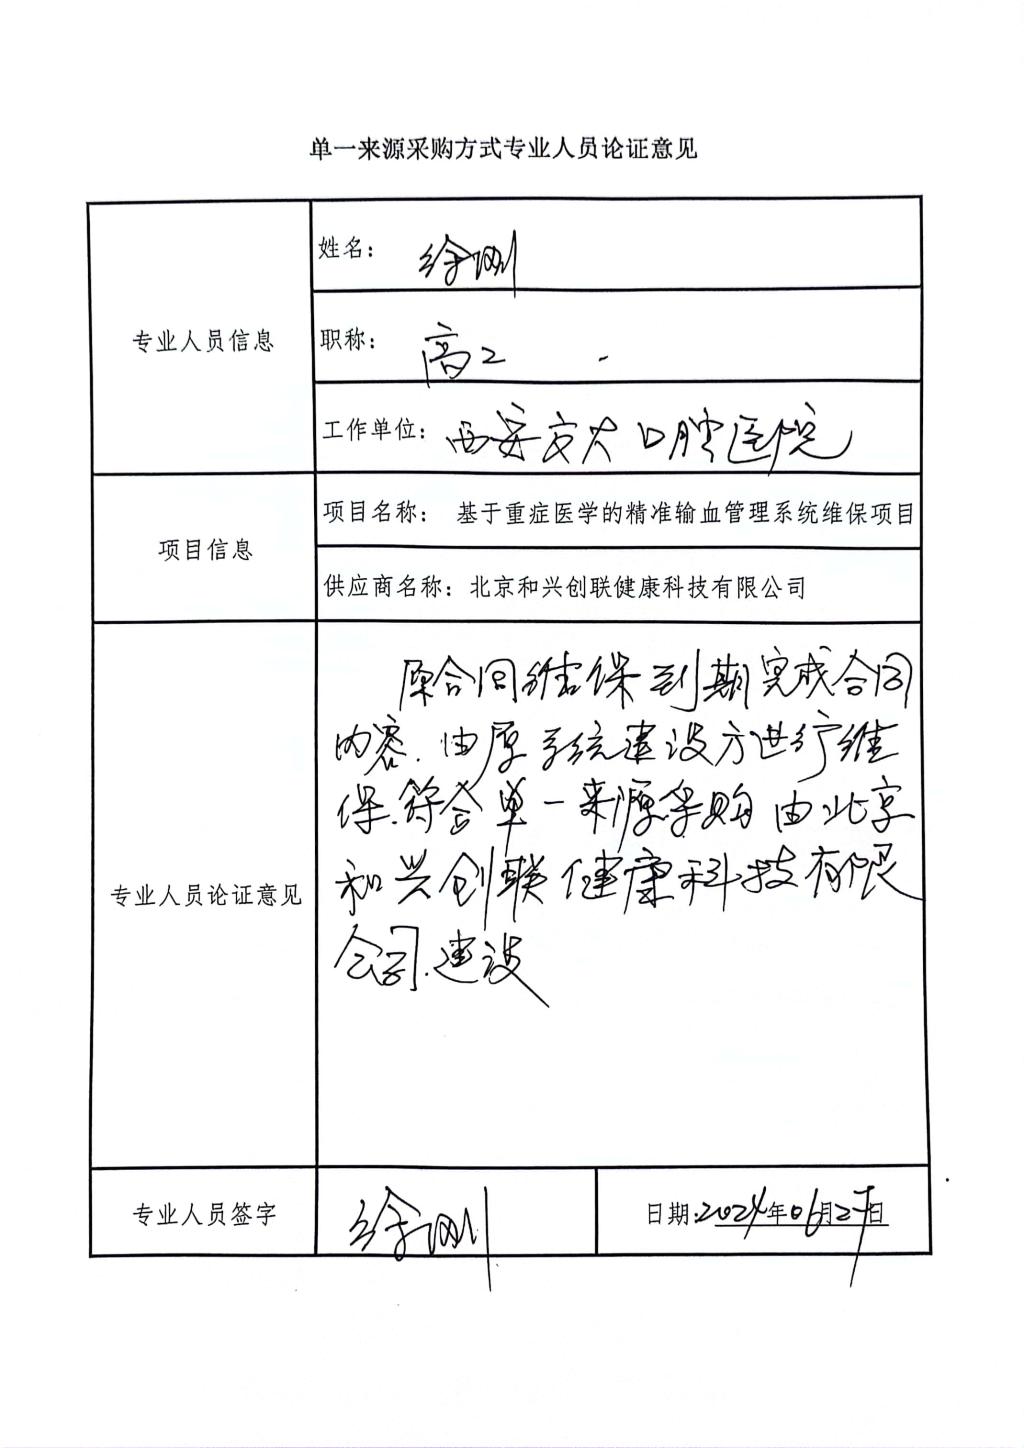 单一来源采购方式专业人员论证意见
专业人员信息
姓名： 徐刚
职称： 高工
工作单位： 西安交大口腔医院
项目信息
项目名称： 基于重症医学的精准输血管理系统维保项目
供应商名称：北京和兴创联健康科技有限公司
专业人员论证意见
原合同维保到期完成合同
内容.由原系统建设方进行维
保.符合单一来源采购 由北京
和兴创联健康科技有限
公司.建设
专业人员签字
徐刚
日期:2024年06月27日